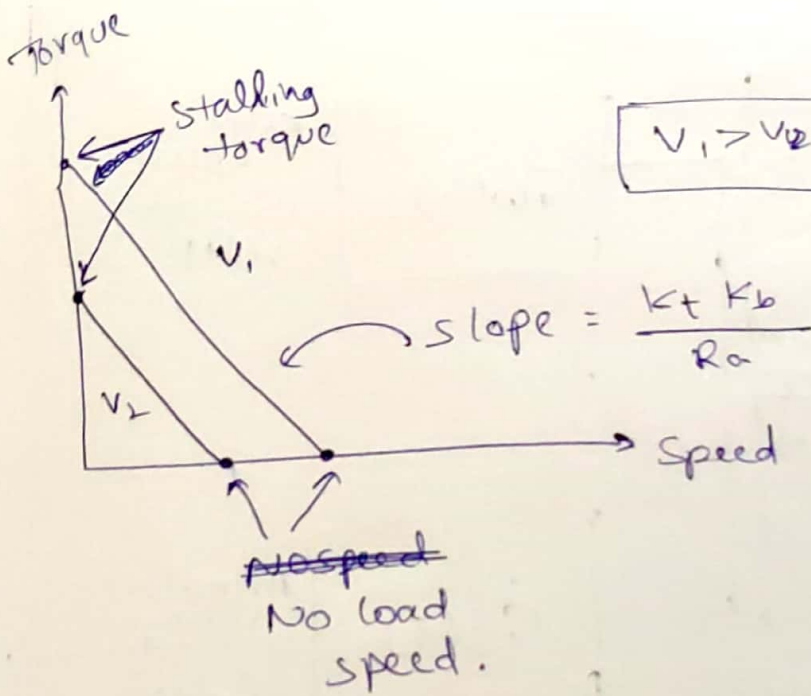 Torque
stalling
torque
V₁ > V₂
V₁
slope = Kt Kb
Ra
V₂
Speed
No speed
No load
speed.